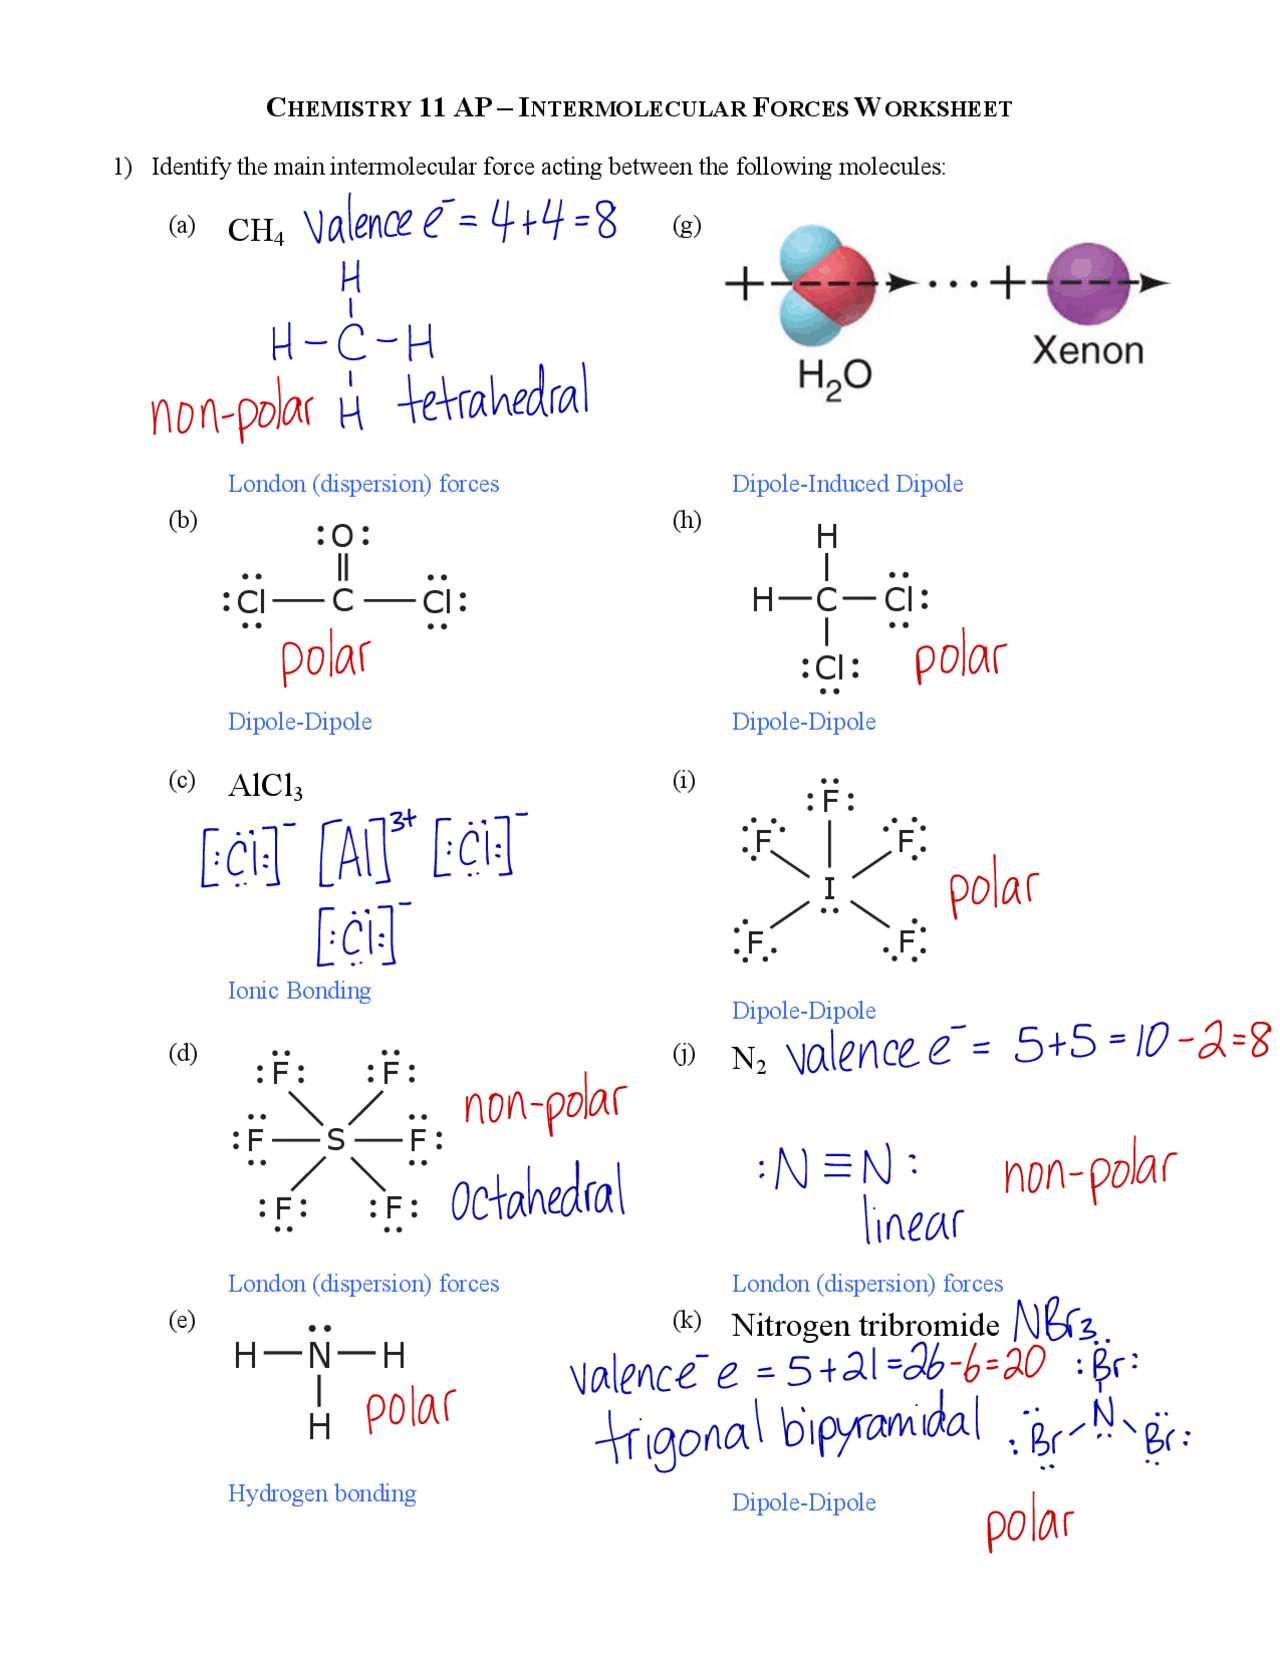 CHEMISTRY 11 AP – INTERMOLECULAR FORCES WORKSHEET
1) Identify the main intermolecular force acting between the following molecules:
(a) CH4 valence e⁻ = 4+4=8
H
H–C–H
non-polar H tetrahedral
London (dispersion) forces
(b)
:O:
:Cl — C — Cl:
polar
Dipole-Dipole
(c) AlCl3
[:Cl:]⁻ [Al]³⁺ [:Cl:]⁻
[:Cl:]⁻
Ionic Bonding
(d)
:F: :F:
:F — S — F:
:F: :F:
non-polar
octahedral
London (dispersion) forces
(e)
H — N — H
H
polar
Hydrogen bonding
(g)
+ ... +
H2O
Xenon
Dipole-Induced Dipole
(h)
H
H — C — Cl:
:Cl:
polar
Dipole-Dipole
(i)
:F:
F F
I
F F
polar
Dipole-Dipole
(j) N2 valence e⁻ = 5+5=10-2=8
:N≡N:
linear
non-polar
London (dispersion) forces
(k) Nitrogen tribromide NBr3
valence⁻ e = 5+21=26-6=20
:Br:
trigonal bipyramidal
N
:Br Br:
Dipole-Dipole
polar